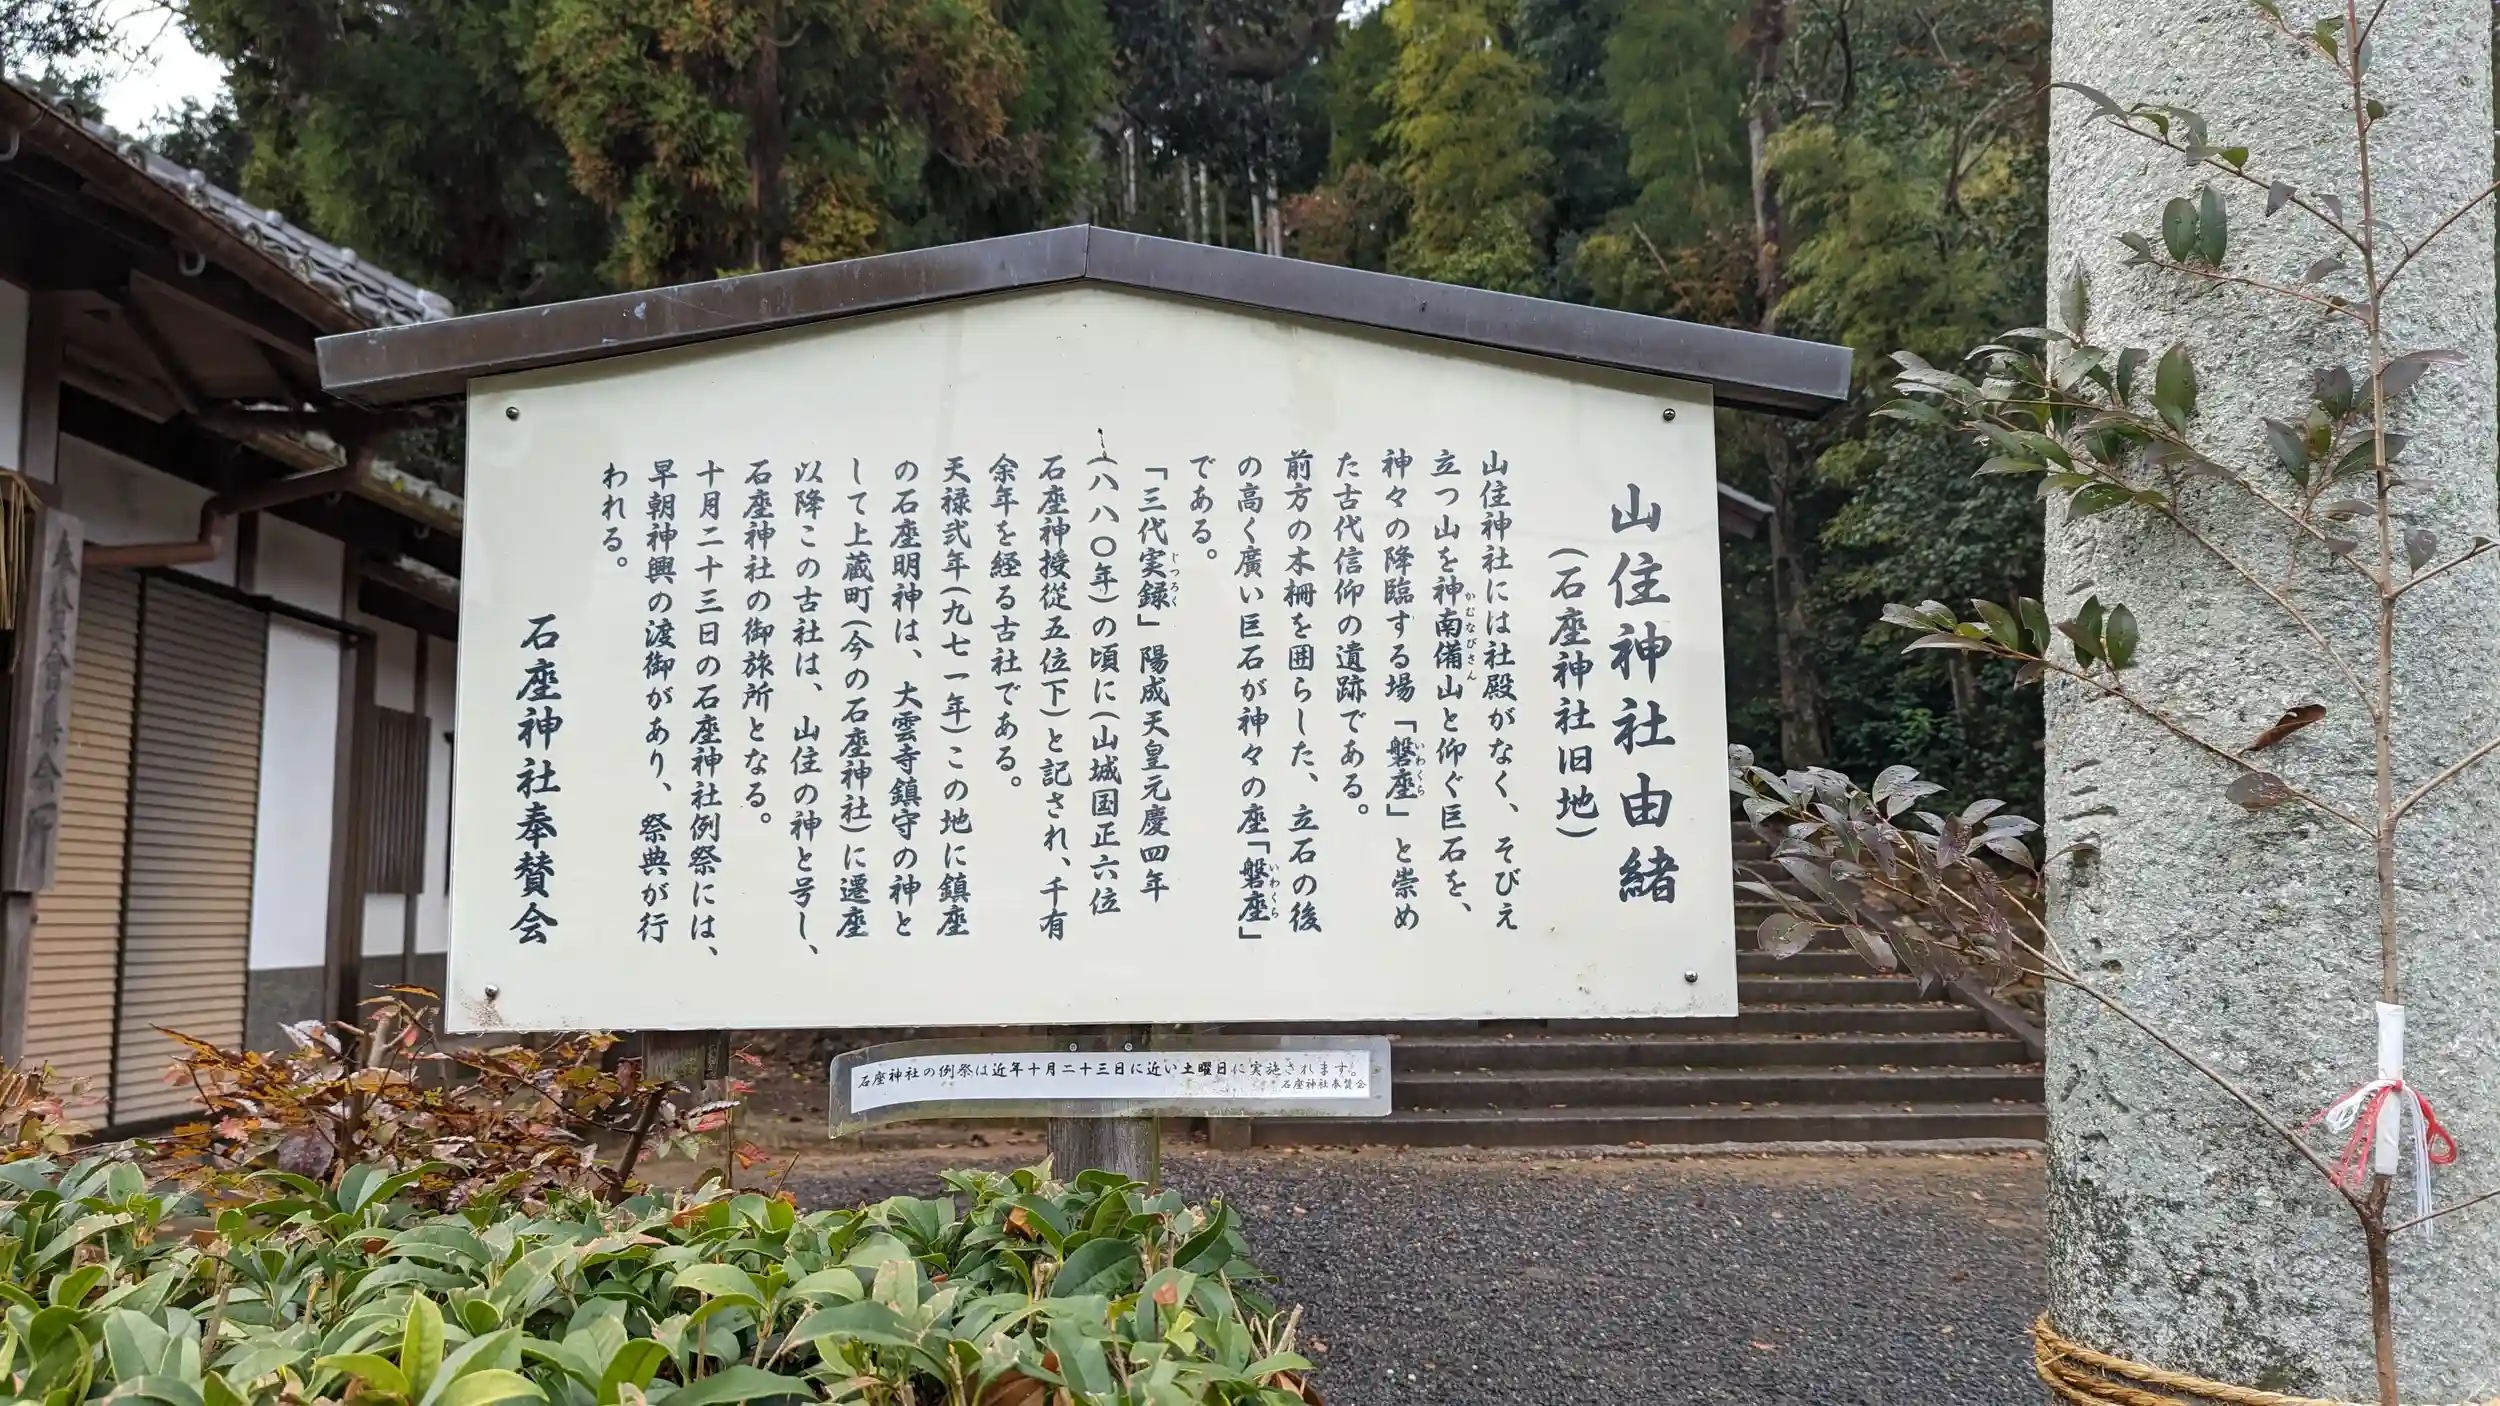 山住神社由緒
(石座神社旧地)
山住神社には社殿がなく、そびえ
立つ山を神南備山と仰ぐ巨石を、
かむなびさん
神々の降臨する場「磐座」と崇め
いわくら
た古代信仰の遺跡である。
前方の木柵を囲らした、立石の後
の高く廣い巨石が神々の座「磐座」
いわくら
である。
「三代実録」陽成天皇元慶四年
じつろく
(八八〇年)の頃に(山城国正六位
石座神授従五位下)と記され、千有
余年を経る古社である。
天禄弐年(九七一年)この地に鎮座
の石座明神は、大雲寺鎮守の神と
して上蔵町(今の石座神社)に遷座
以降この古社は、山住の神と号し、
石座神社の御旅所となる。
十月二十三日の石座神社例祭には、
早朝神興の渡御があり、祭典が行
われる。
石座神社奉賛会
石座神社の例祭は近年十月二十三日に近い土曜日に実施されます。
石座神社奉賛会